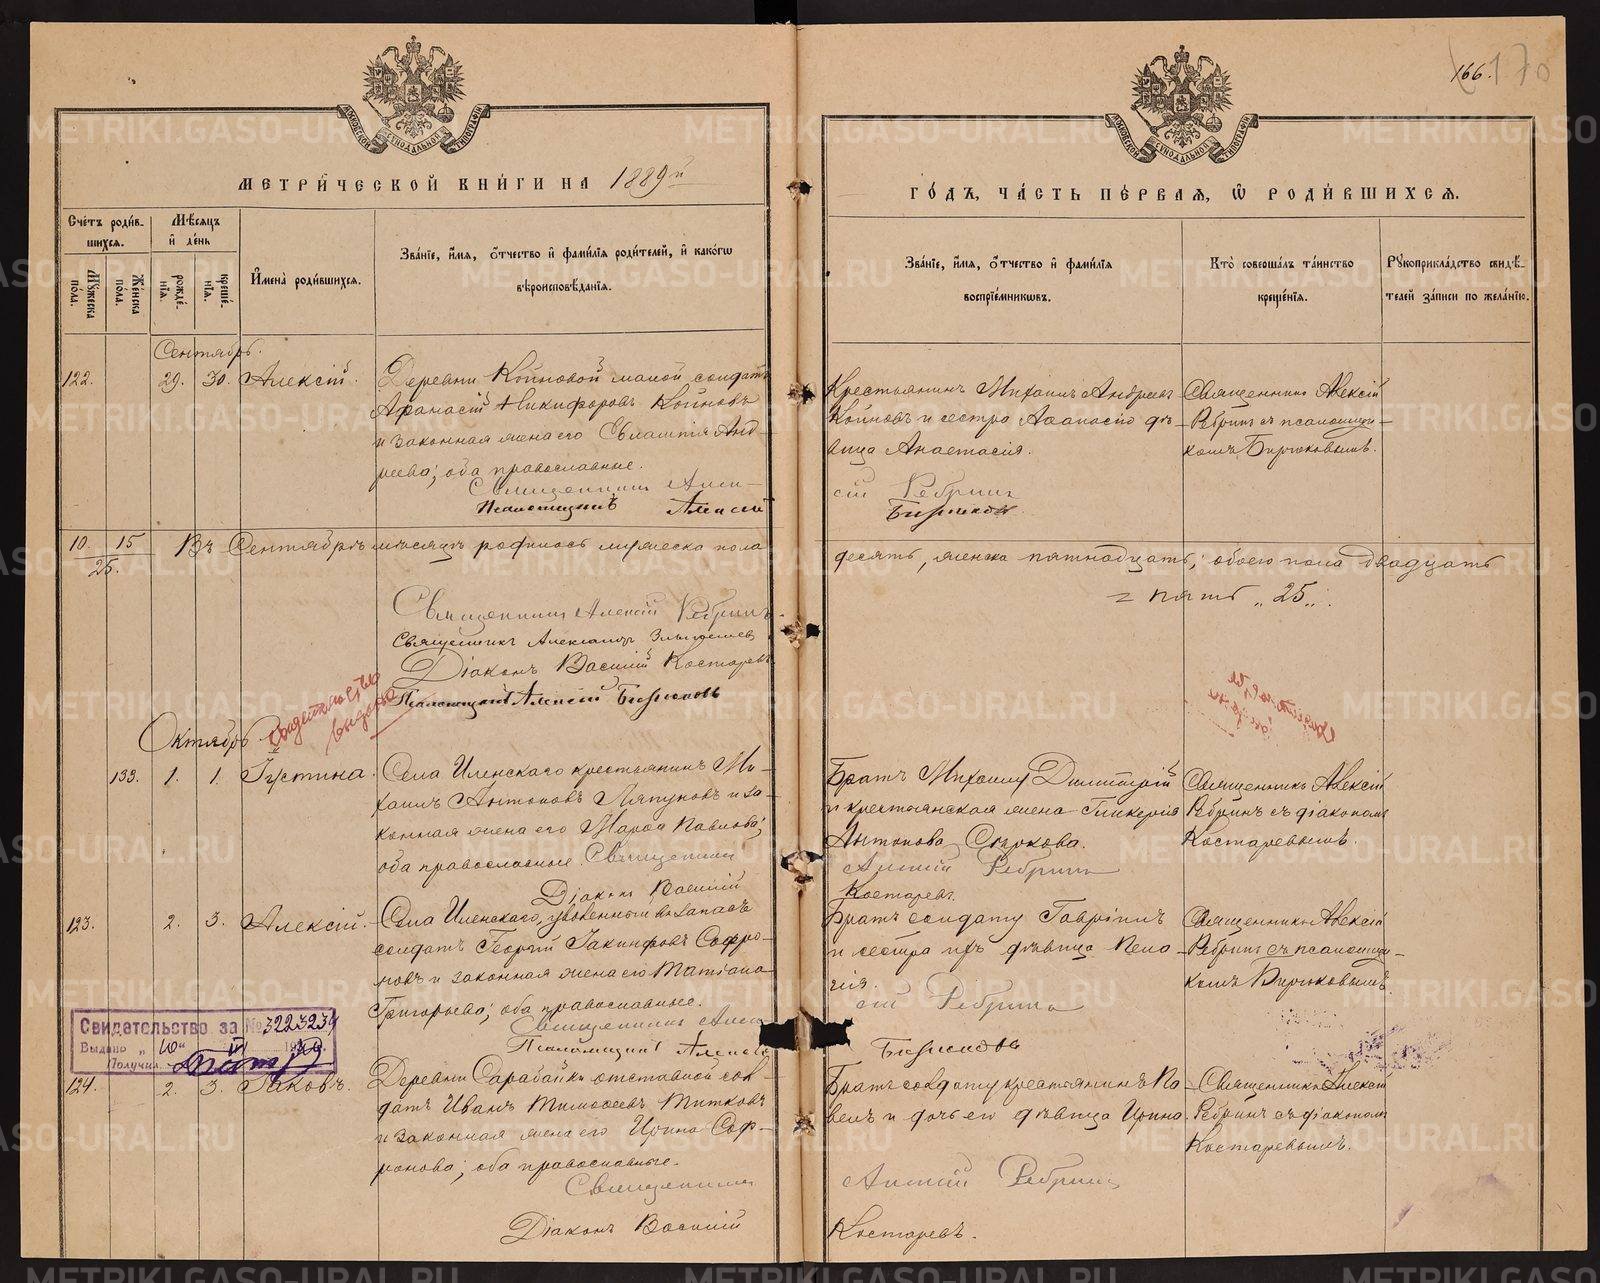 166. 170
МОСКОВСКОЙ СѴНОДАЛЬНОЙ ТИПОГРАФІИ
МОСКОВСКОЙ СѴНОДАЛЬНОЙ ТИПОГРАФІИ
МЕТРИ́ЧЕСКОЙ КНИ́ГИ НА 1889й
ГО́ДЪ, ЧА́СТЬ ПЕ́РВАЯ, Ѡ҆ РОДИ́ВШИХСЯ.
Сче́тъ роди́в-
шихся.
Мѣ́сяцъ
и҆ де́нь
Мꙋ́жеска по́ла.
Же́нска по́ла.
рожде́-
нїя.
креще́-
нїя.
И҆мена̀ роди́вшихся.
Зва́нїе, и҆́мя, ѻ҆́тчество и҆ фами́лїя роди́телей, и҆ како́гѡ
вѣроисповѣ́данїя.
Зва́нїе, и҆́мя, ѻ҆́тчество и҆ фами́лїя
воспрїе́мникѡвъ.
Кто̀ соверша́лъ та́инство
креще́нїя.
Рꙋкоприкла́дство свидѣ́-
телей за́писи по жела́нїю.
Сентябрь.
122. 29. 30. Алексій.
Деревни Койновой малой, солдатъ
Афанасій Никифоровъ Койновъ
и законная жена его Евлампія Анд-
реева; оба православные.
Священникъ Алек-
Псаломщикъ Алексій
Крестьянинъ Михаилъ Андреевъ
Койновъ и сестра Афанасію дѣ-
вица Анастасія.
сій Ребринъ
Бирюковъ
Священникъ Алексій
Ребринъ съ псаломщи-
комъ Бирюковымъ.
10. 15
25.
Въ Сентябрѣ мѣсяцѣ родилось мужеска пола
десять, женска пятнадцать; обоего пола двадцать
пять „25„.
Священникъ Алексій Ребринъ.
Священникъ Александръ
Діаконъ Василій Костаревъ
Псаломщикъ Алексій Бирюковъ
Свидетельство
выдано
Октябрь
133. 1. 1. Іустина.
Села Иленскаго крестьянинъ Ми-
хаилъ Антоновъ Ляпуновъ и за-
конная жена его Марѳа Павлова;
оба православные. Священникъ
Діаконъ Василій
Братъ Михаилу Димитрій
и крестьянская жена Гликерія
Антонова Сысокова.
Алексій Ребринъ
Костаревъ.
Священникъ Алексій
Ребринъ съ діакономъ
Костаревымъ.
123. 2. 3. Алексій.
Села Иленскаго, уволенный въ запасъ
солдатъ Георгій Іакинфовъ Софро-
новъ и законная жена его Татіана
Григорьева; оба православные.
Священникъ Алек
Псаломщикъ Алексій
Братъ солдату Гавріилъ
и сестра ихъ дѣвица Пела-
гія.
сій Ребринъ
Бирюковъ
Священникъ Алексій
Ребринъ съ псаломщи-
комъ Бирюковымъ.
Свидетельство за № 3223234
Выдано „10“ III 19
Получил
124. 2. 3. Іаковъ.
Деревни Сарабайки отставной сол-
датъ Иванъ Тимоѳеевъ Титковъ
и законная жена его Ирина Соф-
ронова; оба православные.
Священникъ
Діаконъ Василій
Братъ солдату крестьянинъ Па-
велъ и дочь его дѣвица Ирина.
Алексій Ребринъ
Костаревъ.
Священникъ Алексій
Ребринъ съ діакономъ
Костаревымъ.
METRIKI.GASO-URAL.RU